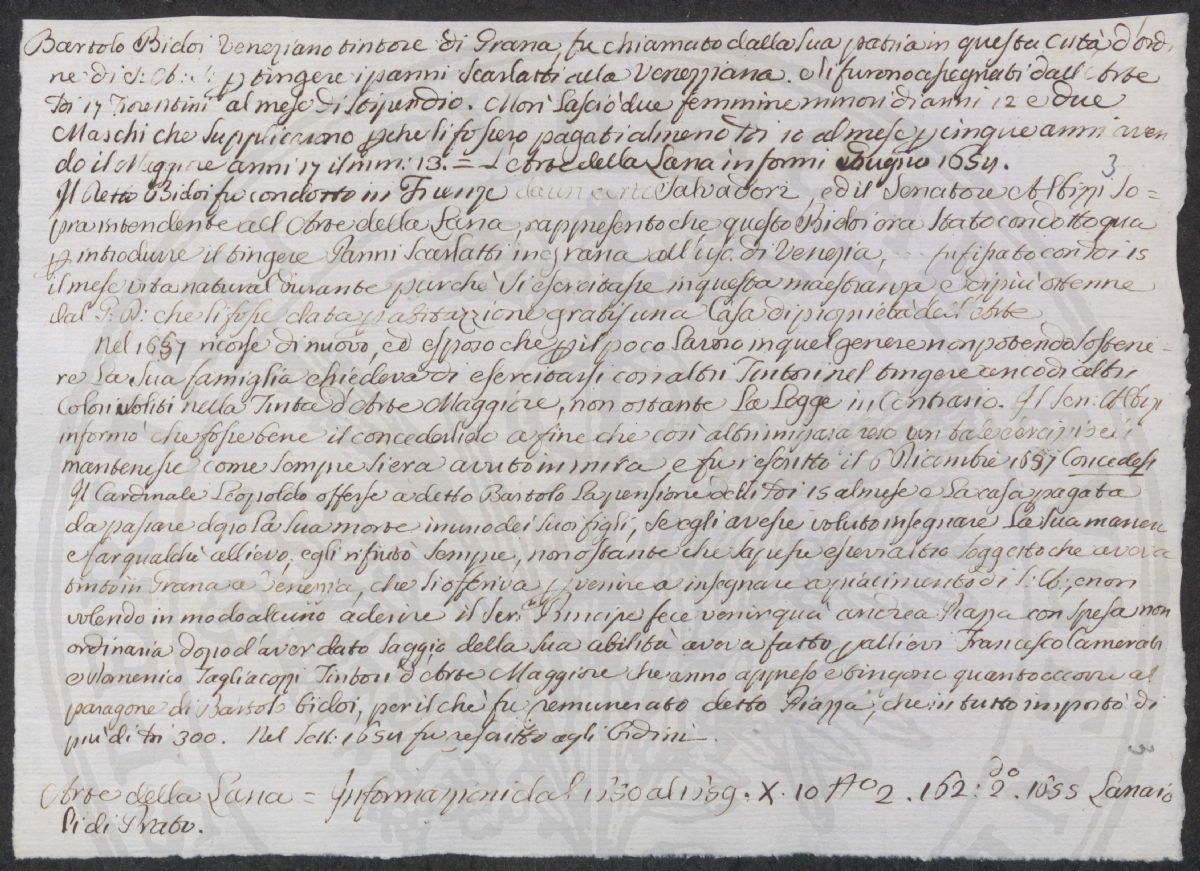 Bartolo Bidoi Veneziano tintore di Grana fu chiamato dalla sua patria in questa Città d'ordi
ne di S: A: S: p tingere i panni Scarlatti alla Venezziana. e li furono assegnati dall'Arte
17 Fiorentini al mese di stipendio. Morì lasciò due femmine minori di anni 12 e due
Maschi che supplicarono pche li fossero pagati almeno 10 al mese p cinque anni aven
do il Maggiore anni 17 il min: 13. = L'Arte della Lana informi Giugno 1654. 3
Il detto Bidoi fu condotto in Firenze da un certo Salvadori, ed il Senatore Albizzi So=
praintendente all'Arte della Lana, rappresentò che questo Bidoi era stato condotto qua
p introdurre il tingere Panni Scarlatti in grana all'uso di Venezia, fu fissato con 15
il mese vita natural durante purchè si esercitasse in questa maestranza e di più ottenne
dal che li fosse data p abitazzione gratis una Casa di proprietà dell'Arte
Nel 1657 ricorse di nuovo, ed espose che p il poco lavoro in quel genere non potendo sostene=
re La Sua famiglia chiedeva di esercitarsi con altri Tintori nel tingere anco di altri
Colori soliti nella Tinta d'Arte Maggiore, non ostante La Legge in Contrario. Il Sen: Albizi
informò che fosse bene il concederlido a fine che così un tale
mantenesse come sempre si era avuto in mira e fu rescritto il 6 Dicembre 1657 Concedesi
Il Cardinale Leopoldo offerse a detto Bartolo La pensione delli 15 al mese e La casa pagata
da passare dopo la sua morte in uno dei suoi figli, se egli avesse voluto insegnare La sua manier
e far qualche allievo, egli rifiutò sempre, non ostante che sapesse esservi altro Soggetto che aveva
tinto in Grana a Venezia, che si offeriva p venire a insegnare a piacimento di S: A:, e non
volendo in modo alcuno aderire il Ser: Principe fece venir quà Andrea Piazza con spesa non
ordinaria dopo d'aver dato saggio della sua abilità aveva fatto p allievi Francesco Camerati
e Domenico Tagliacozzi Tintori d'Arte Maggiore che anno appreso e tingono quanto occorre al
paragone di Bartolo Bidoi, per il chè fu remunerato detto Piazza, che in tutto importò di
più di 300. Nel Sett: 1654 fu rescritto agli Ordini =
3
Arte della Lana = Informazioni dal 1530 al 1539. X. 10 2. 162: 2. 1655 Lanaio
li di Prato.